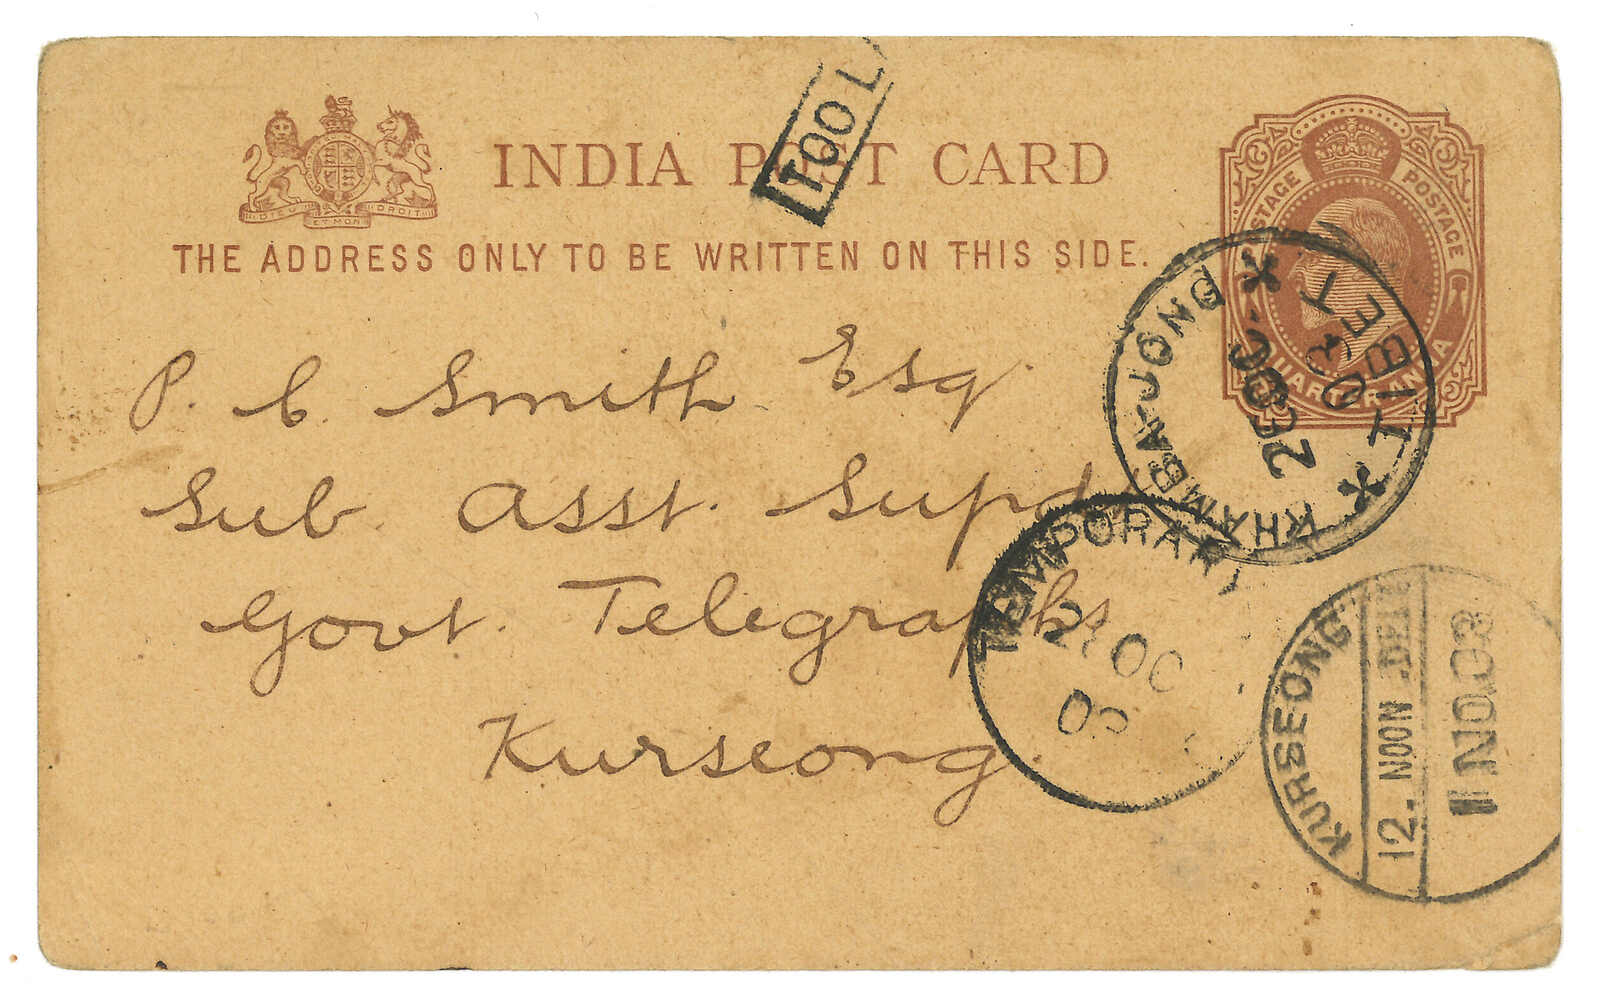 DIEU ET MON DROIT
INDIA POST CARD
THE ADDRESS ONLY TO BE WRITTEN ON THIS SIDE.
TOO L
POSTAGE POSTAGE
QUARTER ANNA
KHAMBA-JONG
TIBET
03
P. C. Smith Esq
Sub. Asst. Supdt
Govt. Telegraphs
Kurseong.
TEMPORARY
OC
KURSEONG
12. NOON DELY
1 NO.03